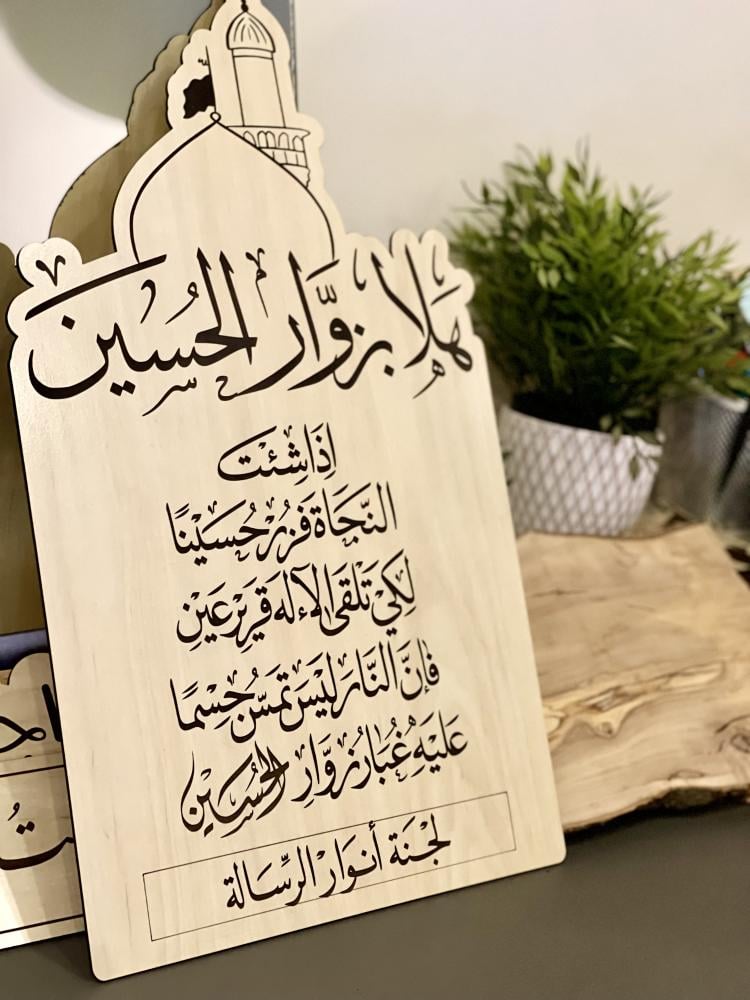 هَلا بزوَّار الحُسين
اِذَا شِئتَ
النَّجَاةَ فَزُرْ حُسَيْنًا
لِكَيْ تَلْقَى الآءلهَ قَرِيْرَ عَيْنِ
فَاِنَّ النَّارَ لَيْسَ تَمَسّ جِسْمًا
عَلَيْهِ غُبَارُ زوَّارِ الحُسَيْنِ
لَجْنَة أنوَار الرِّسَالة